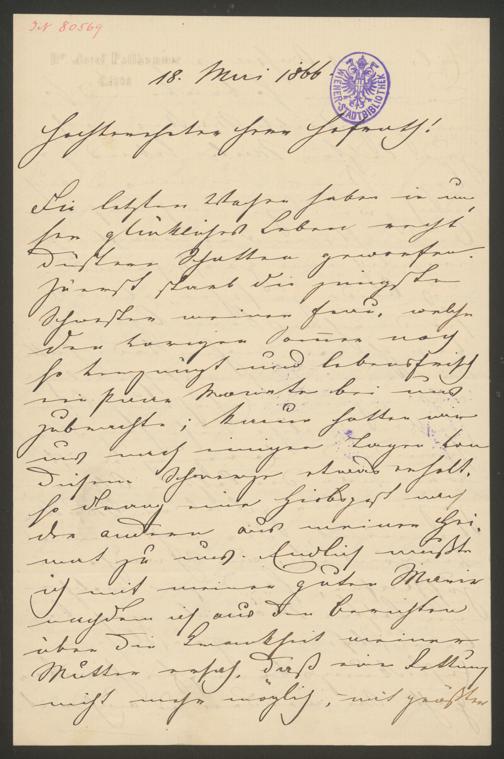 IN 80569
18. Mai 1866.
WIENER STADTBIBLIOTHEK
Hochverehrter Herr Hofrath!
Die letzten Wochen haben in un-
ser glückliches Leben recht
düstere Schatten geworfen.
Zuerst starb die jüngste
Schwester meiner Frau, welche
den vorigen Sommer noch
so vergnügt und lebensfrisch
ein paar Monate bei uns
zubrachte; kaum hatten wir
uns nach einigen Tagen von
diesem Schmerze etwas erholt,
so drang eine Hiobspost nach
der andern aus meiner Hei-
mat zu uns. Endlich mußte
ich mit meiner guten Marie
nachdem ich aus den Berichten
über die Krankheit meiner
Mutter ersah, daß eine Rettung
nicht mehr möglich, mit größter